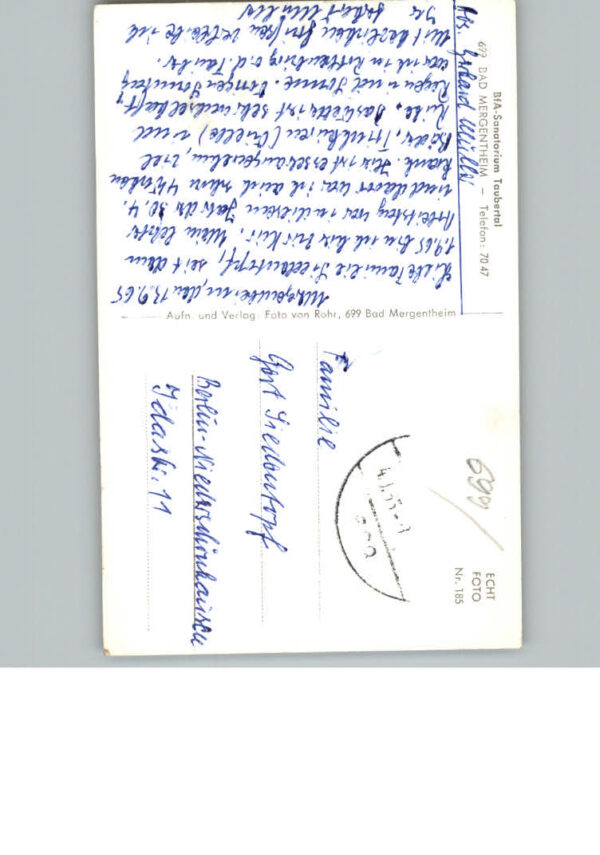 BfA-Sanatorium Taubertal
699 BAD MERGENTHEIM – Telefon: 70 47
Abs. Gerhard Müller
Mergentheim, den 13.9.65
Liebe Familie Siedentopf, seit dem
1.9.65 bin ich hier zur Kur. Mein letzter
Arbeitstag war in diesem Jahr der 30.4.
und davor war ich auch schon 4 Wochen
krank. Hier ist es sehr angenehm, viel
Bäder, Trinkkuren (Quelle) und
Ruhe. Das Wetter ist sehr wechselhaft,
Regen und Sonne. Vorigen Sonntag
war ich in Rothenburg o.d. Tauber.
Mit herzlichen Grüßen verbleibe ich
Ihr Gerhard Müller
Aufn. und Verlag: Foto von Rohr, 699 Bad Mergentheim
ECHT
FOTO
Nr. 185
699/
Familie
Siedentopf
Berlin-Niederschönhausen
Idastr. 11